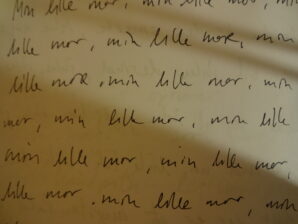 Min lille mor, min lille mor, min
lille mor, min lille mor, min
lille mor. min lille mor, min
mor, min lille mor, min lille
min lille mor, min lille mor,
lille mor. min lille mor, min